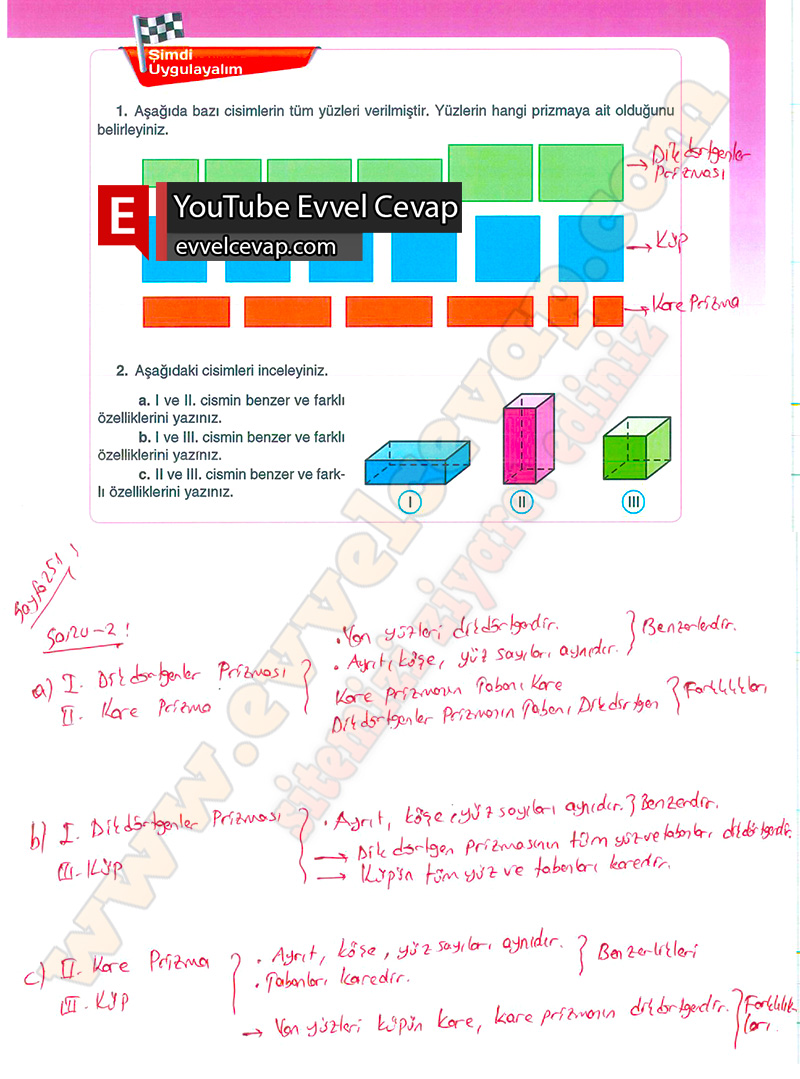 Şimdi
Uygulayalım
1. Aşağıda bazı cisimlerin tüm yüzleri verilmiştir. Yüzlerin hangi prizmaya ait olduğunu
belirleyiniz.
→ Dikdörtgenler
Prizması
E YouTube Evvel Cevap
evvelcevap.com
→ Küp
→ Kare Prizma
2. Aşağıdaki cisimleri inceleyiniz.
a. I ve II. cismin benzer ve farklı
özelliklerini yazınız.
b. I ve III. cismin benzer ve farklı
özelliklerini yazınız.
c. II ve III. cismin benzer ve fark-
lı özelliklerini yazınız.
I II III
Sayfa 251
Soru-2!
a) I. Dikdörtgenler Prizması
II. Kare Prizma
. Yan yüzleri dikdörtgendir.
. Ayrıt, köşe, yüz sayıları aynıdır. } Benzerlerdir.
Kare prizmanın Tabanı Kare
Dikdörtgenler Prizmanın Tabanı Dikdörtgen } Farklılıkları
b) I. Dikdörtgenler Prizması
III. Küp
. Ayrıt, köşe, yüz sayıları aynıdır. } Benzerdir.
→ Dikdörtgen Prizmasının tüm yüz ve tabanları dikdörtgendir.
→ Küpün tüm yüz ve tabanları karedir.
c) II. Kare Prizma
III. Küp
. Ayrıt, köşe, yüz sayıları aynıdır.
. Tabanları karedir. } Benzerlikleri
→ Yan yüzleri küpün kare, kare prizmanın dikdörtgendir. } Farklılık-
ları.
www.evvelcevap.com
sitemizi ziyaret ediniz